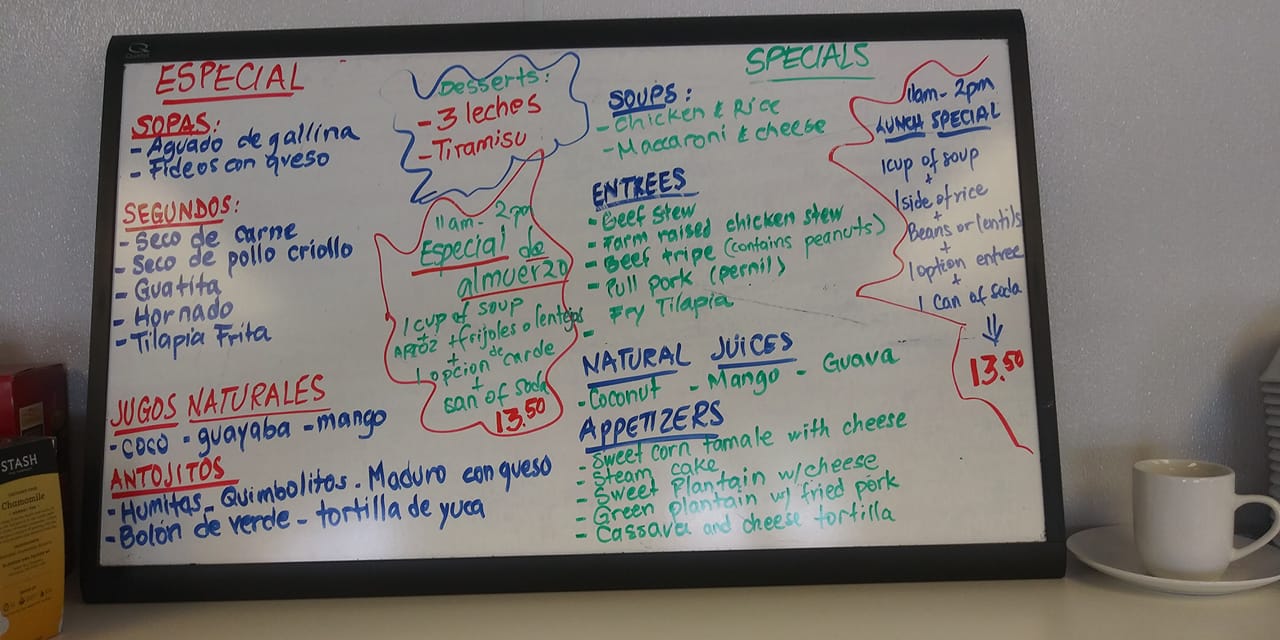 ESPECIAL
SOPAS:
- Aguado de gallina
- Fideos con queso
SEGUNDOS:
- Seco de carne
- Seco de pollo criollo
- Guatita
- Hornado
- Tilapia Frita
JUGOS NATURALES
- coco - guayaba - mango
ANTOJITOS
- Humitas - Quimbolitos - Maduro con queso
- Bolón de verde - tortilla de yuca
Desserts:
- 3 leches
- Tiramisu
11am - 2pm
Especial de
almuerzo
1 cup of soup
+
arroz + frijoles o lentejas
+
1 opcion de carde
+
can of soda
13.50
SPECIALS
SOUPS:
- Chicken & Rice
- Maccaroni & cheese
ENTREES
- Beef stew
- Farm raised chicken stew
- Beef tripe (contains peanuts)
- Pull pork (pernil)
- Fry Tilapia
NATURAL JUICES
- Coconut - Mango - Guava
APPETIZERS
- Sweet corn tamale with cheese
- Steam cake
- Sweet Plantain w/cheese
- Green plantain w/ fried pork
- Cassava and cheese tortilla
11am - 2pm
LUNCH SPECIAL
1 cup of soup
+
1 side of rice
+
Beans or lentils
+
1 option entree
+
1 can of soda
13.50
STASH
Chamomile